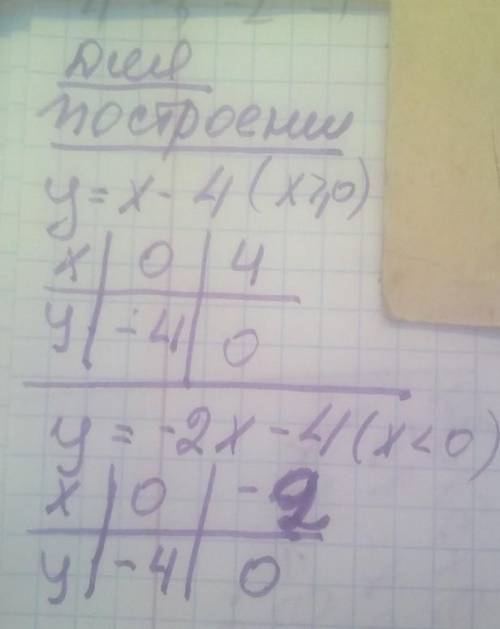 Для
построении
y = x - 4 (x ≥ 0)
x | 0 | 4
y | -4 | 0
y = -2x - 4 (x < 0)
x | 0 | -2
y | -4 | 0